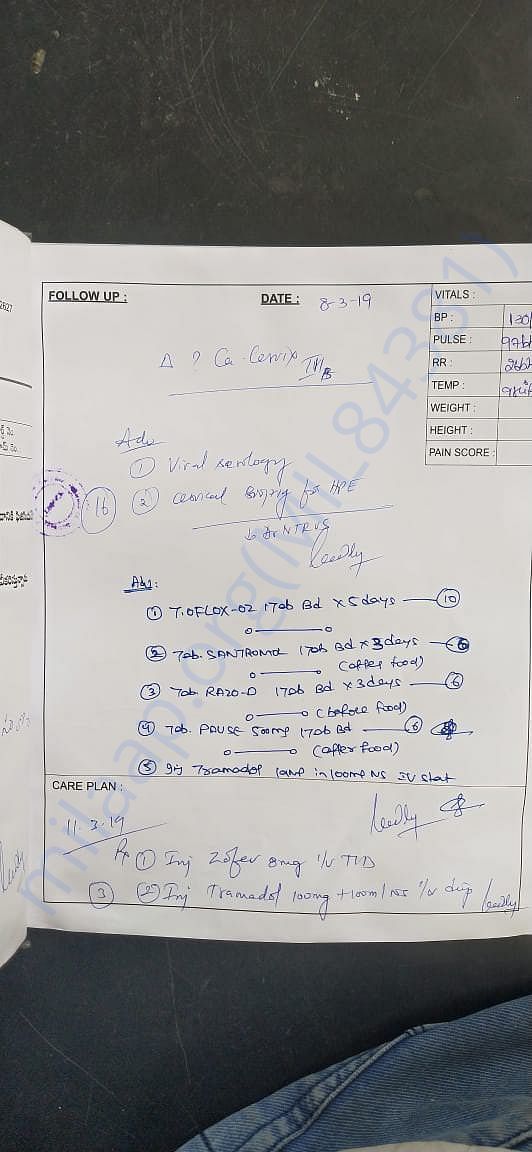 FOLLOW UP :
DATE : 8-3-19
VITALS :
BP : 130/
PULSE :
RR :
TEMP :
WEIGHT :
HEIGHT :
PAIN SCORE :
Δ ? Ca. Cervix IIIB
Adv
① Viral serology
16 ② Cervical Biopsy for HPE
Dr NTRVS
Adv:
① T.OFLOX-OZ 1Tab Bd x 5days — 10
② Tab. SANTROMA 1Tab Bd x 3days — 6
(after food)
③ Tab RAZO-D 1Tab Bd x 3days — 6
(before food)
④ Tab. PAUSE 500mg 1Tab Bd — 6
(after food)
⑤ Inj Tramadol 1amp in 100ml NS IV stat
CARE PLAN :
11.3.19
Rx ① Inj Zofer 8mg i/v TID
③ ② Inj Tramadol 100mg + 100ml NS i/v drip
milaap.org(MIL84381)